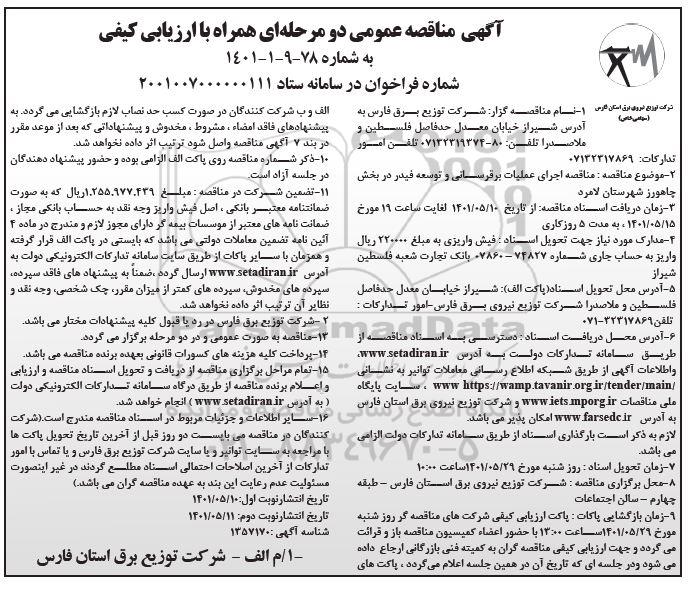 آگهی مناقصه عمومی دو مرحله‌ای همراه با ارزیابی کیفی
به شماره ۷۸-۹-۱-۱۴۰۱
شماره فراخوان در سامانه ستاد ۲۰۰۱۰۰۷۰۰۰۰۰۰۱۱۱
شرکت توزیع نیروی برق استان فارس
(سهامی خاص)
۱-نـام مناقصـه گزار: شـرکت توزیع بـرق فارس به
آدرس شـیراز خیابان معـدل حدفاصل فلسـطین و
ملاصـدرا تلفـن: ۸۰-۰۷۱۳۲۳۱۹۳۷۴ تلفـن امـور
تدارکات: ۰۷۱۳۲۳۱۷۸۶۹
۲-موضوع مناقصه : مناقصه اجرای عملیات برقرسـانی و توسعه فیدر در بخش
چاهورز شهرستان لامرد
۳-زمان دریافت اسـناد مناقصه: از تاریخ ۱۴۰۱/۰۵/۱۰ لغایت ساعت ۱۹ مورخ
۱۴۰۱/۰۵/۱۵ ، به مدت ۵ روزکاری
۴-مدارک مورد نیاز جهت تحویل اسـناد : فیش واریزی به مبلغ ۲۲۰۰۰۰ ریال
واریز به حساب جاری شماره ۷۴۸۲۷ – ۰۷۸۶۰ بانک تجارت شعبه فلسطین
شیراز
۵-آدرس محل تحویل اسـناد(پاکت الف): شـیراز خیابـان معدل حدفاصل
فلسـطین و ملاصدرا شـرکت توزیع نیروی بـرق فارس-امور تـدارکات :
تلفن۳۲۳۱۷۸۶۹-۰۷۱
۶-آدرس محـل دریافـت اسـناد : دسترسـی بـه اسـناد مناقصـه از
طریـق سـامانه تـدارکات دولـت بـه آدرس www.setadiran.ir،
واطلاعات آگهی از طریق شـبکه اطلاع رسـانی معاملات توانیر به نشـانی
www https://wamp.tavanir.org.ir/tender/main/ ، سـایت پایگاه
ملی مناقصات www.iets.mporg.ir و شـرکت توزیع نیروی برق استان فارس
به آدرس www.farsedc.ir امکان پذیر می باشد.
لازم به ذکر اسـت بارگذاری اسـناد از طریق سـامانه تدارکات دولت الزامی
می باشد.
۷-زمان تحویل اسناد : روز شنبه مورخ ۱۴۰۱/۰۵/۲۹ساعت ۱۰:۰۰
۸-محل برگزاری مناقصه : شـرکت توزیع نیروی برق اسـتان فارس – طبقه
چهارم – سالن اجتماعات
۹-زمان بازگشایی پاکات : پاکت ارزیابی کیفی شرکت های مناقصه گر روز شنبه
مورخ ۱۴۰۱/۰۵/۲۹ساعت ۱۳:۰۰ با حضور اعضاء کمیسیون مناقصه باز و قرائت
می گردد و جهت ارزیابی کیفی مناقصه گران به کمیته فنی بازرگانی ارجاع داده
می شود ودر جلسه ای که تاریخ آن در همین جلسه اعلام می‌گردد ، پاکت های
الف و ب شرکت کنندگان در صورت کسب حد نصاب لازم بازگشایی می گردد. به
پیشنهادهای فاقد امضاء ، مشروط ، مخدوش و پیشنهاداتی که بعد از موعد مقرر
در بند ۷ آگهی مناقصه واصل شود ترتیب اثر داده نخواهد شد.
۱۰-ذکر شـماره مناقصه روی پاکت الف الزامی بوده و حضور پیشنهاد دهندگان
در جلسه آزاد است.
۱۱-تضمین شـرکت در مناقصه : مبلـغ ۱,۲۵۵,۹۷۷,۴۳۹ریال که به صورت
ضمانتنامه معتبـر بانکی ، اصل فیش واریز وجه نقد به حسـاب بانکی مجاز ،
ضمانت نامه های معتبر از موسسات بیمه گر دارای مجوز لازم و مندرج در ماده ۴
آئین نامه تضمین معاملات دولتی می باشد که بایستی در پاکت الف قرار گرفته
و همزمان با سـایر پاکات از طریق سایت سامانه تدارکات الکترونیکی دولت به
آدرس www.setadiran.ir ارسال گردد ،ضمناً به پیشنهاد های فاقد سپرده،
سپرده های مخدوش، سپرده های کمتر از میزان مقرر، چک شخصی، وجه نقد و
نظایر آن ترتیب اثر داده نخواهد شد.
۲ -شرکت توزیع برق فارس در رد یا قبول کلیه پیشنهادات مختار می باشد.
۱۳-مناقصه به صورت عمومی و در دو مرحله برگزار می گردد.
۱۴-پرداخت کلیه هزینه های کسورات قانونی بعهده برنده مناقصه می باشد.
۱۵-تمام مراحل برگزاری مناقصه از دریافت و تحویل اسـناد مناقصه و ارزیابی
و اعـلام برنده مناقصه از طریق درگاه سـامانه تـدارکات الکترونیکی دولت
( به آدرس www.setadiran.ir ) انجام خواهد شد.
۱۶-سـایر اطلاعات و جزئیات مربوط در اسـناد مناقصه مندرج است.(شرکت
کنندگان در مناقصه می بایسـت دو روز قبل از آخرین تاریخ تحویل پاکت ها
با مراجعه به سـایت توانیر و یا سایت شرکت توزیع برق فارس و یا تماس با امور
تدارکات از آخرین اصلاحات احتمالی اسـناد مطلـع گردند در غیر اینصورت
مسئولیت عدم رعایت این بند به عهده مناقصه گران می باشد.)
تاریخ انتشارنوبت اول:۱۴۰۱/۰۵/۱۰
تاریخ انتشارنوبت دوم: ۱۴۰۱/۰۵/۱۱
شناسه آگهی :۱۳۵۷۱۷۰
۱/م الف - شرکت توزیع برق استان فارس